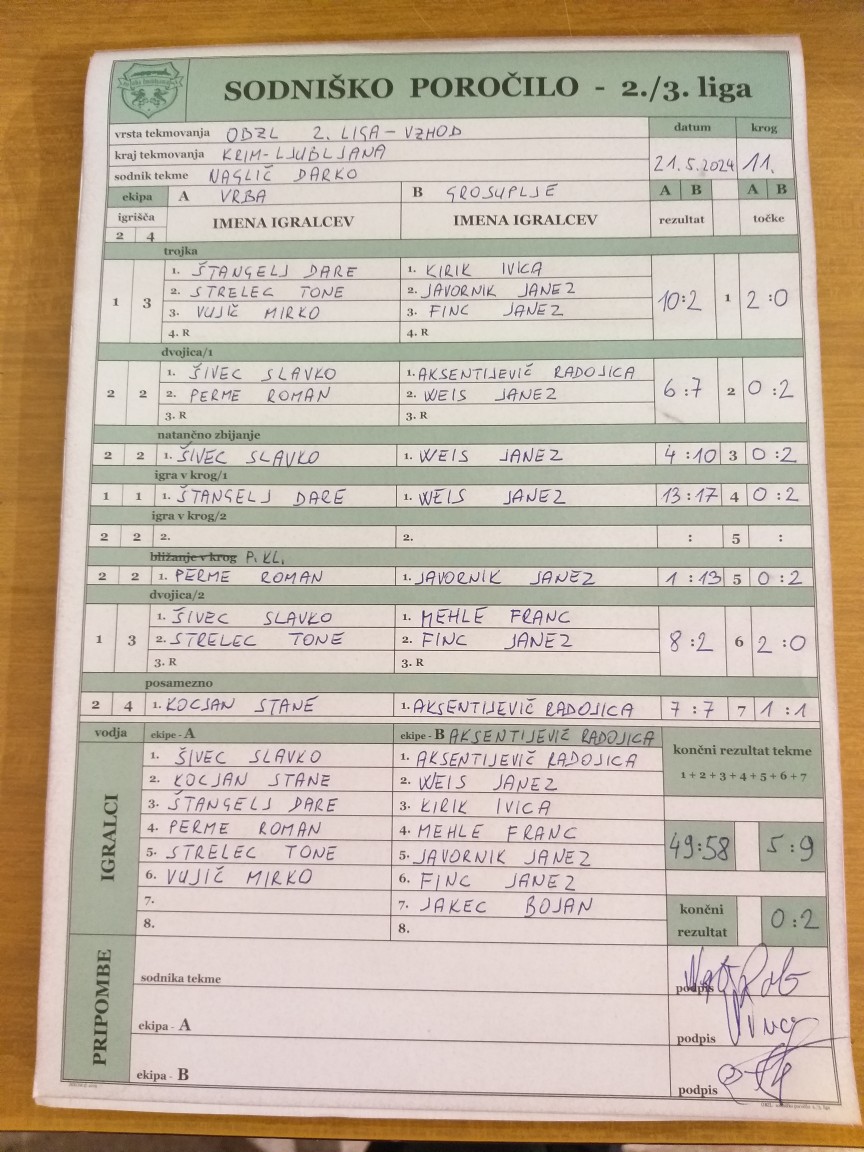 SODNIŠKO POROČILO - 2./3. liga
vrsta tekmovanja OBZL 2. LIGA - VZHOD datum krog
kraj tekmovanja KRIM-LJUBLJANA 21.5.2024 11.
sodnik tekme NAGLIČ DARKO
ekipa A VRBA B GROSUPLJE A B A B
igrišča IMENA IGRALCEV IMENA IGRALCEV rezultat točke
2 4
trojka
1. ŠTANGELJ DARE 1. KIRIK IVICA
1 3 2. STRELEC TONE 2. JAVORNIK JANEZ 10:2 1 2:0
3. VUJIČ MIRKO 3. FINC JANEZ
4. R
dvojica/1
1. ŠIVEC SLAVKO 1. AKSENTIJEVIČ RADOJICA
2 2 2. PERME ROMAN 2. WEIS JANEZ 6:7 2 0:2
3. R 3. R
natančno zbijanje
2 2 1. ŠIVEC SLAVKO 1. WEIS JANEZ 4:10 3 0:2
igra v krog/1
1 1 1. ŠTANGELJ DARE 1. WEIS JANEZ 13:17 4 0:2
igra v krog/2
2 2 2. 2. : 5 :
bližanje v krog P. KL.
2 2 1. PERME ROMAN 1. JAVORNIK JANEZ 1:13 5 0:2
dvojica/2
1. ŠIVEC SLAVKO 1. MEHLE FRANC
1 3 2. STRELEC TONE 2. FINC JANEZ 8:2 6 2:0
3. R 3. R
posamezno
2 4 1. KOCJAN STANE 1. AKSENTIJEVIČ RADOJICA 7:7 7 1:1
vodja ekipe - A ekipe - B AKSENTIJEVIČ RADOJICA
končni rezultat tekme
1 + 2 + 3 + 4 + 5 + 6 + 7
IGRALCI
1. ŠIVEC SLAVKO 1. AKSENTIJEVIČ RADOJICA
2. KOCJAN STANE 2. WEIS JANEZ
3. ŠTANGELJ DARE 3. KIRIK IVICA
4. PERME ROMAN 4. MEHLE FRANC 49:58 5:9
5. STRELEC TONE 5. JAVORNIK JANEZ
6. VUJIČ MIRKO 6. FINC JANEZ
7. 7. JAKEC BOJAN končni rezultat 0:2
8. 8.
PRIPOMBE
sodnika tekme podpis
ekipa - A podpis
ekipa - B podpis